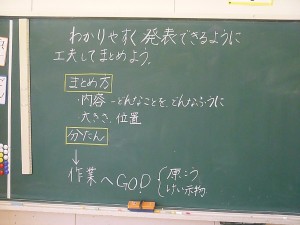 わかりやすく発表できるように
工夫してまとめよう。
まとめ方
・内容-どんなことをどんなふうに
・大きさ、位置
分たん
↓
作業へGO!
原こう
けい示物